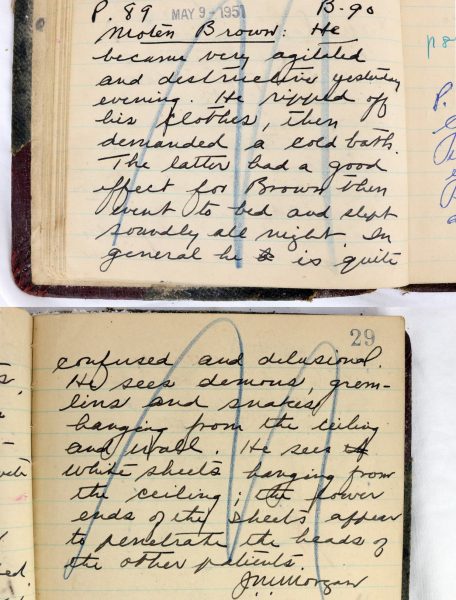 P. 89 MAY 9 - 1951 B-90
Moten Brown: He
became very agitated
and destructive yesterday
evening. He ripped off
his clothes, then
demanded a cold bath.
The latter had a good
effect for Brown then
went to bed and slept
soundly all night. In
general he is quite
29
confused and delusional.
He sees demons, grem-
lins and snakes
hanging from the ceiling
and wall. He sees
white sheets hanging from
the ceiling; the lower
ends of the sheets appear
to penetrate the heads of
the other patients.
J.M. Morgan